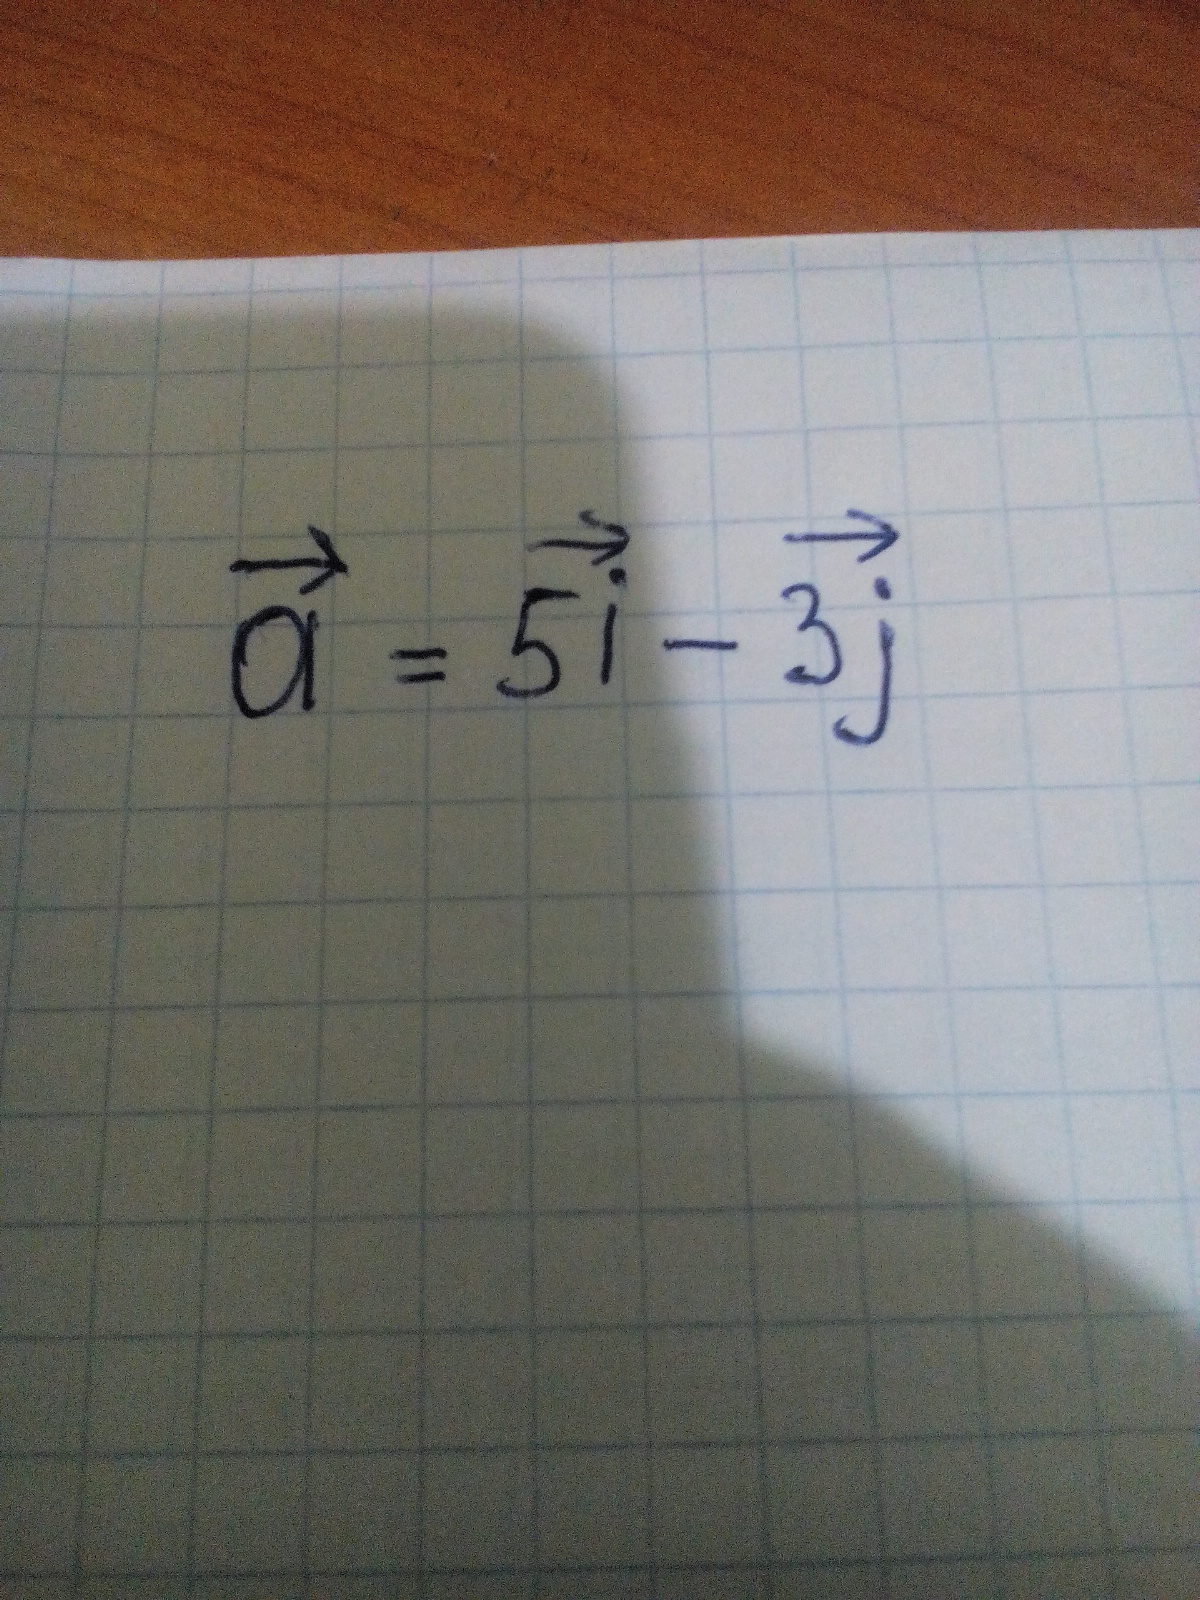 a⃗ = 5i⃗ − 3j⃗